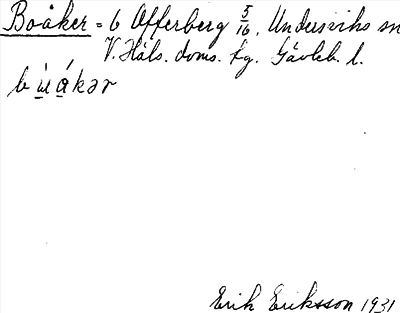 Boåker = b Offerberg 5/16, Undersviks sn
V. Häls. doms. fg. Gävleb. l.
bu̇ákər
Erik Eriksson 1931